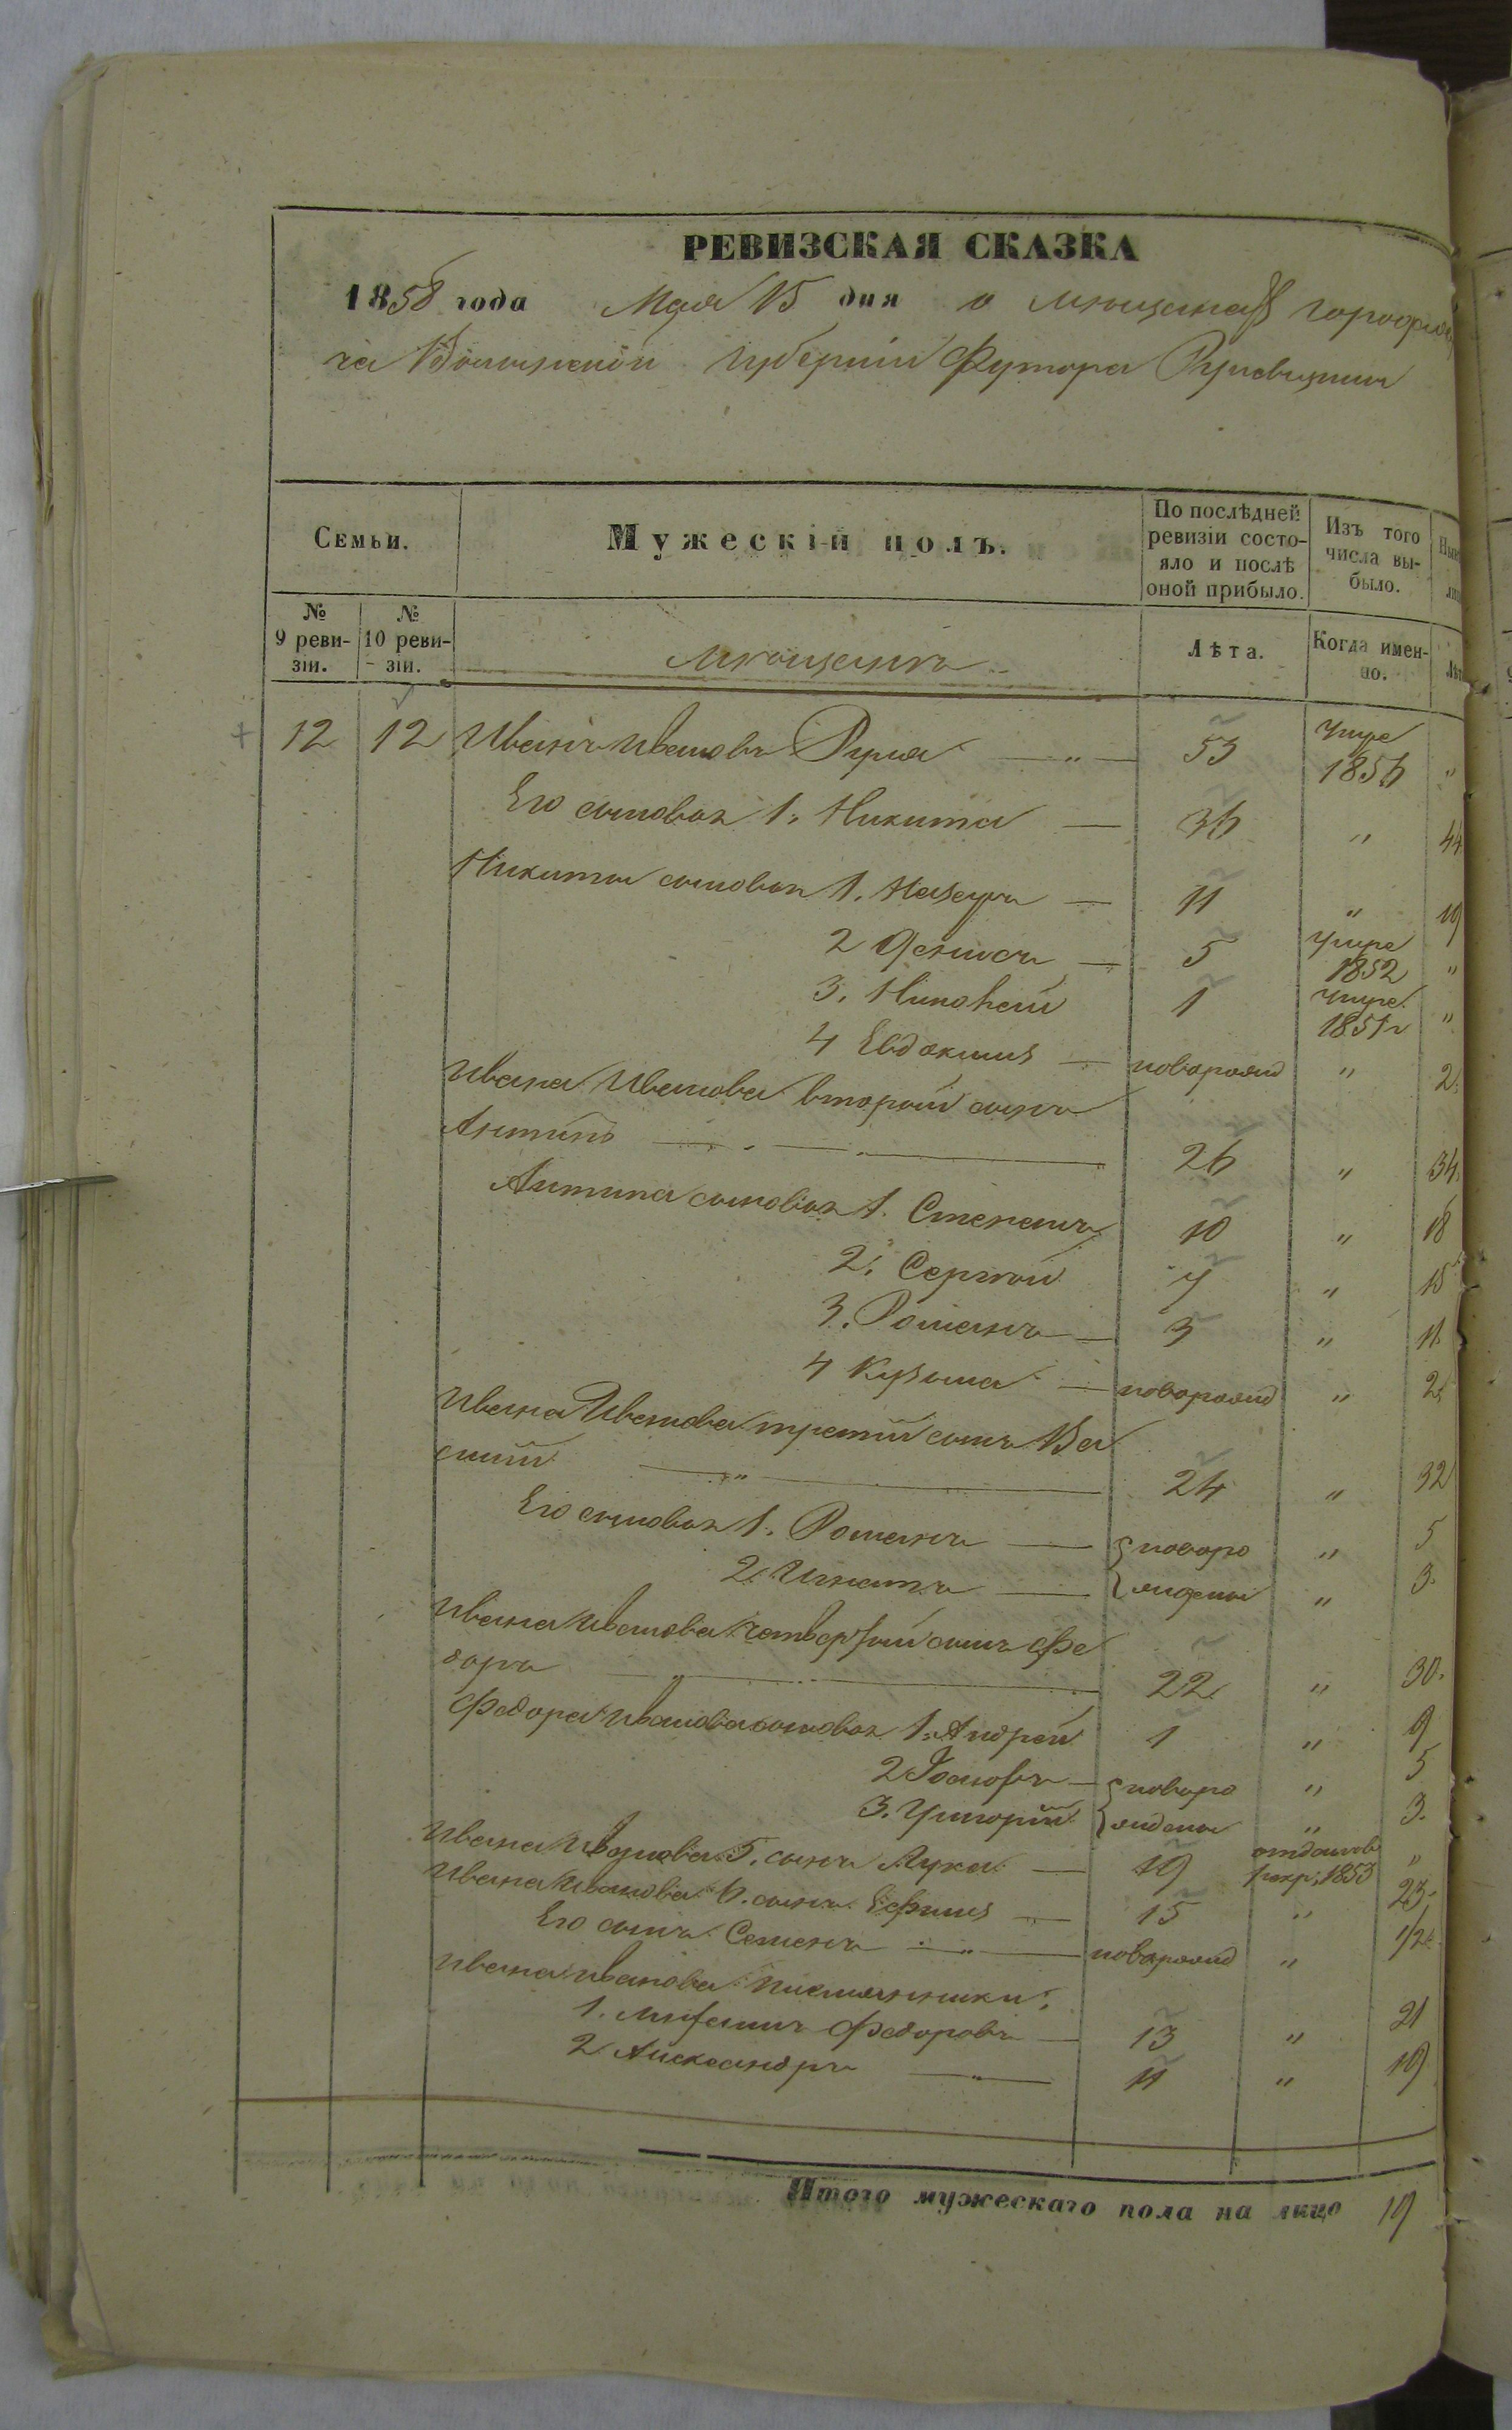 РЕВИЗСКАЯ СКАЗКА
1858 года Мая 15 дня о мѣщанахъ
Губерніи Футора
Семьи.
Мужескій полъ.
По послѣдней ревизіи состояло и послѣ оной прибыло.
Изъ того числа выбыло.
№ 9 ревизіи.
№ 10 ревизіи.
мѣщанъ
Лѣта.
Когда именно.
12 12 Иванъ Ивановъ Руля 53 умре 1856 "
Его сыновья 1. Никита 36 " 44
Никиты сыновья 1. Назаръ 11 " 19
2 Денисъ 5 умре 1852 "
3. Тимофей 1 умре 1851г "
4 Евдокимъ новорожд " 2.
Ивана Иванова второй сынъ
Антипъ 26 " 34.
Антипа сыновья 1. Степанъ 10 " 18
2. Сергѣй 7 " 15
3. Романъ 3 " 11.
4 Кузьма новорожд " 2.
Ивана Иванова третій сынъ Ва
силій " 24 " 32
Его сыновья 1. Романъ новоро " 5
2. Игнатъ жденны " 3.
Ивана Иванова четвертый сынъ Фе
доръ " 22. " 30.
Федора Иванова сыновья 1. Андрей 1 " 9
2 Іосифъ новоро " 5
3. Григорій жденны " 3.
Ивана Иванова 5. сынъ Лука 19 отданъ въ рекр: 1853 "
Ивана Иванова 6. сынъ Ефимъ 15 " 23.
Его сынъ Семенъ новорожд " 1/2.
Ивана Иванова племянники:
1. Митрофанъ Федоровъ 13 " 21
2 Александръ 11 " 19
Итого мужескаго пола на лицо 19